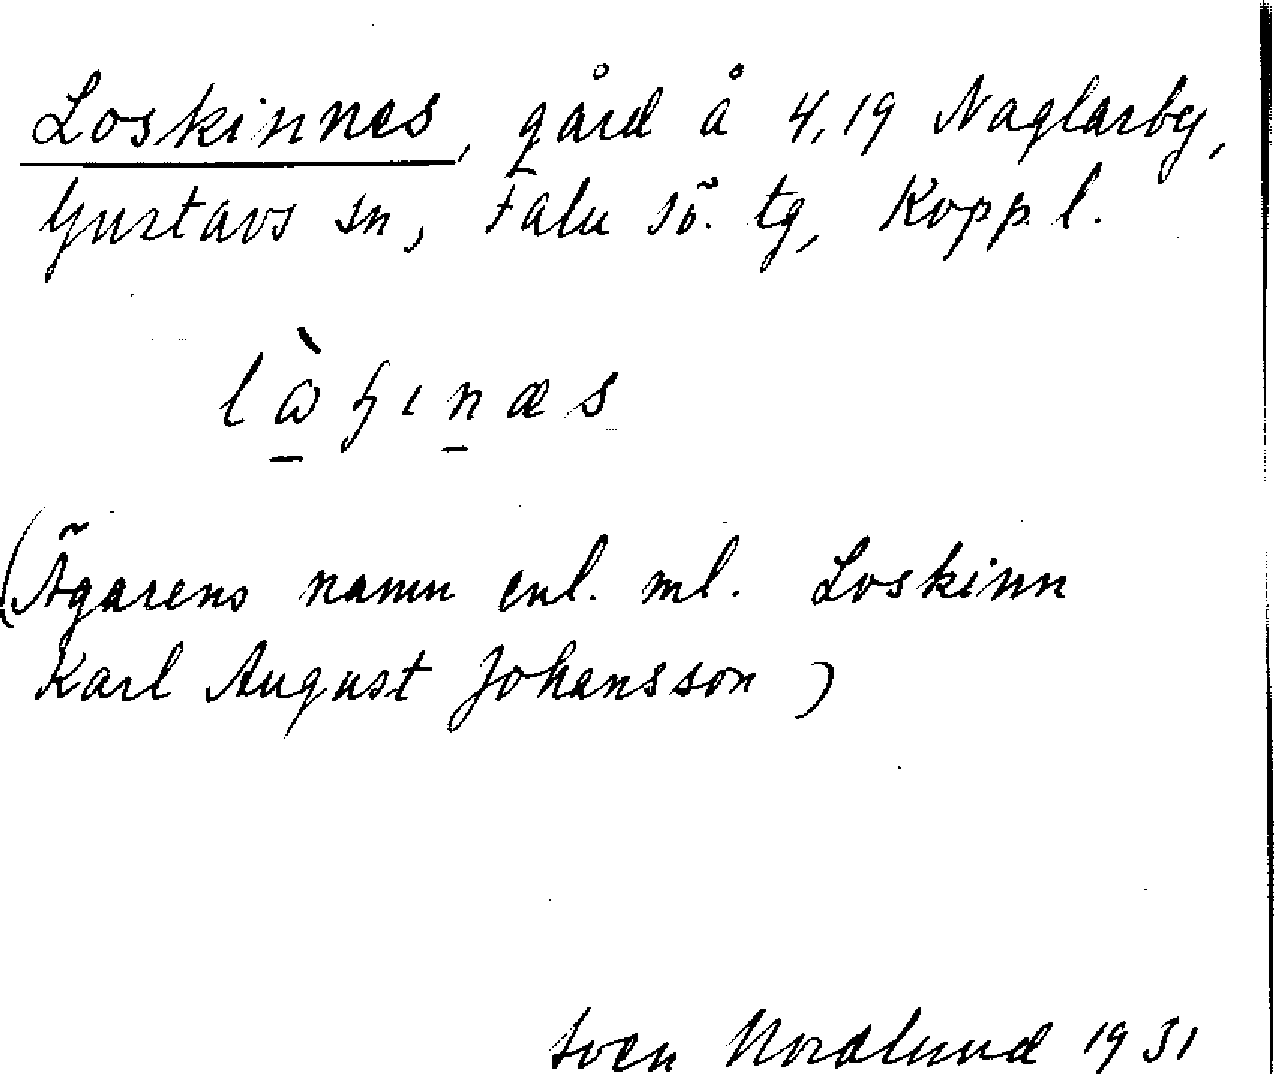 Loskinnes, gård å 4,19 Naglarby,
Gustavs sn, Falu sö. tg, Kopp. l.
(Ägarens namn enl. ml. Loskinn
Karl August Johansson)
Sven Nordlund 1931